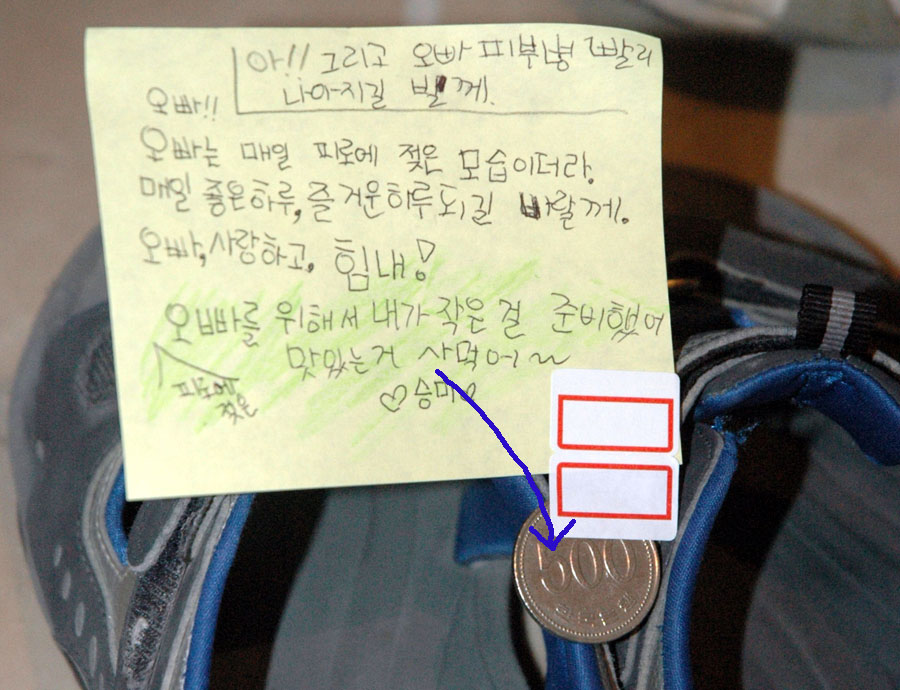 아!! 그리고 오빠 피부병 빨리
나아지길 빌께.
오빠!!
오빠는 매일 피로에 젖은 모습이더라.
매일 좋은하루, 즐거운하루되길 바랄께.
오빠, 사랑하고, 힘내!
오빠를 위해서 내가 작은 걸 준비했어
피로에
젖은
맛있는거 사먹어~~
♡승미♡
500